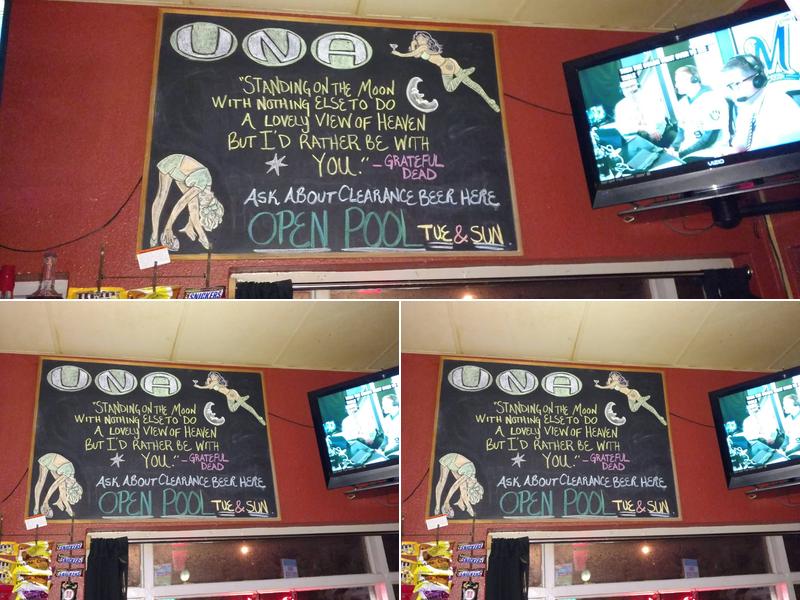 UNA
"STANDING ON THE MOON
WITH NOTHING ELSE TO DO
A LOVELY VIEW OF HEAVEN
BUT I'D RATHER BE WITH
YOU." - GRATEFUL
DEAD
ASK ABOUT CLEARANCE BEER HERE
OPEN POOL TUE & SUN
VIZIO
SNICKERS
UNA
"STANDING ON THE MOON
WITH NOTHING ELSE TO DO
A LOVELY VIEW OF HEAVEN
BUT I'D RATHER BE WITH
YOU." - GRATEFUL
DEAD
ASK ABOUT CLEARANCE BEER HERE
OPEN POOL TUE & SUN
UNA
"STANDING ON THE MOON
WITH NOTHING ELSE TO DO
A LOVELY VIEW OF HEAVEN
BUT I'D RATHER BE WITH
YOU." - GRATEFUL
DEAD
ASK ABOUT CLEARANCE BEER HERE
OPEN POOL TUE & SUN